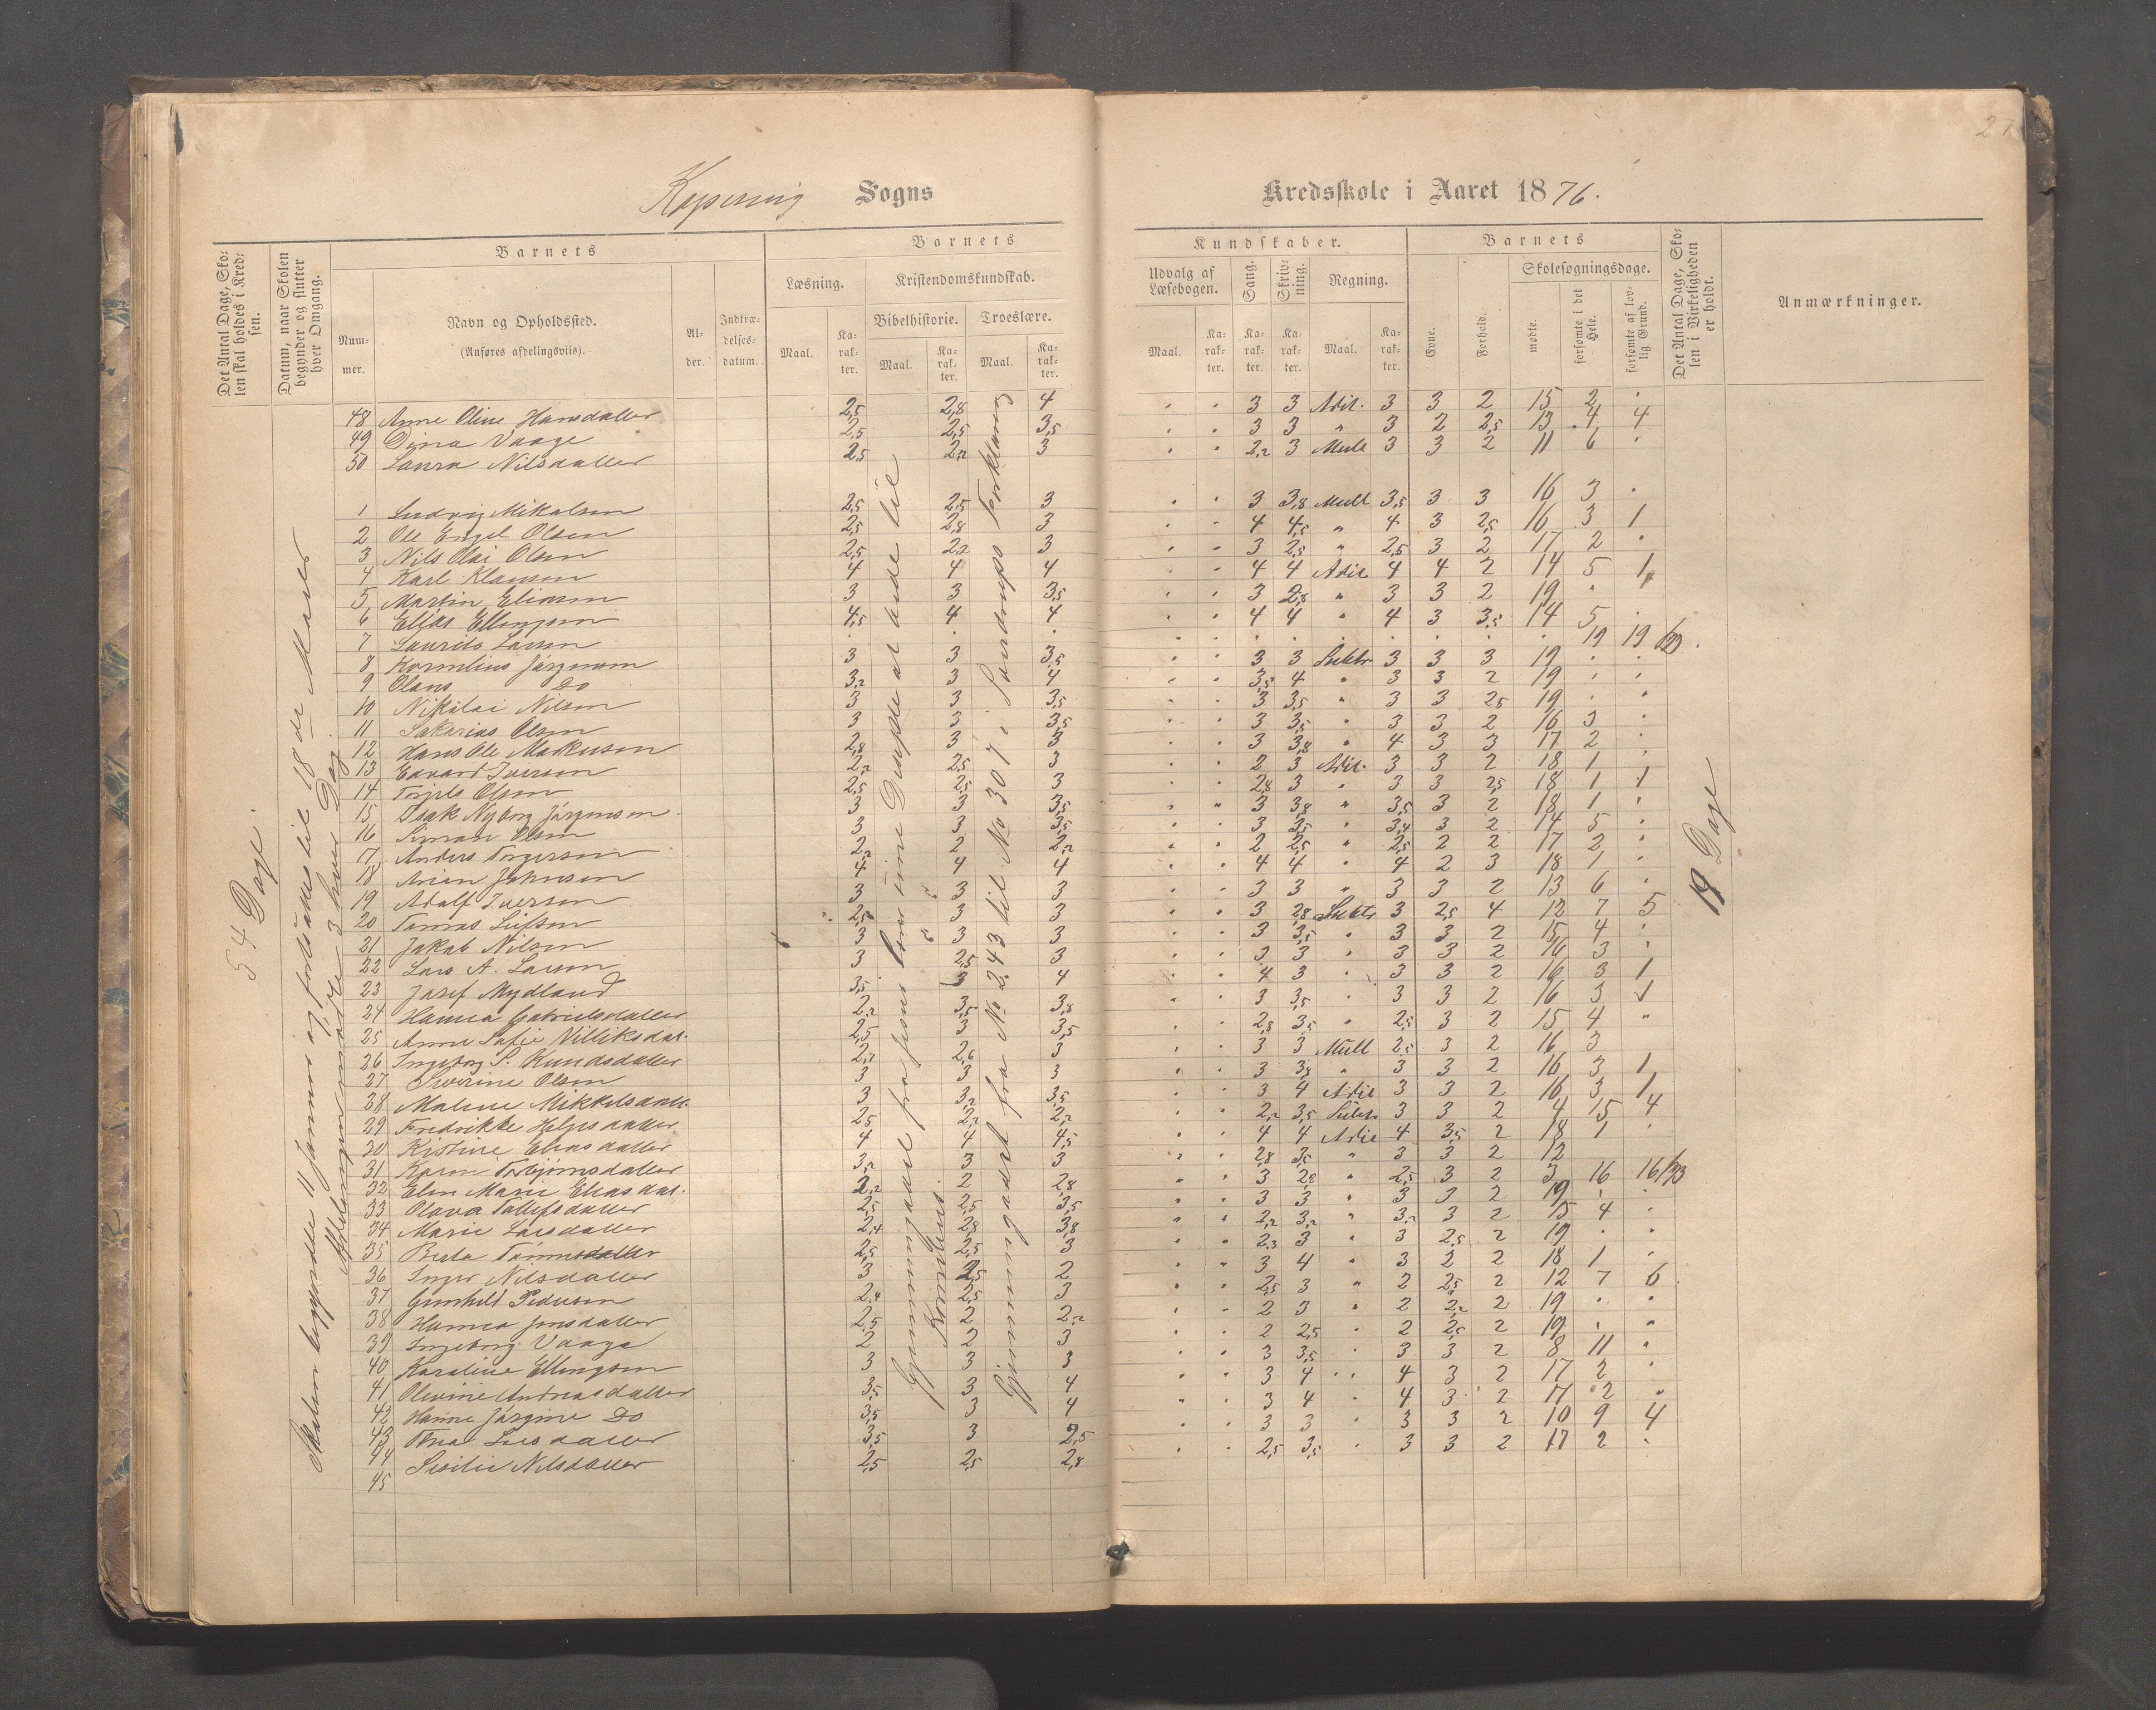 27
Kopervig Sogns Kredsskole i Aaret 1876.
Det Antal Dage, Skolen skal holdes i Kredsen.
Datum, naar Skolen begynder og slutter hver Omgang.
Barnets
Nummer.
Navn og Opholdssted.
(Anføres afdelingsviis).
Alder.
Indtrædelsesdatum.
Barnets
Læsning.
Kristendomskundskab.
Bibelhistorie.
Troeslære.
Maal.
Karakter.
Maal.
Karakter.
Maal.
Karakter.
Kundskaber.
Udvalg af Læsebogen.
Sang.
Skrivning.
Regning.
Maal.
Karakter.
Karakter.
Karakter.
Maal.
Karakter.
Barnets
Evne.
Forhold.
Skolesøgningsdage.
mødte.
forsømte i det Hele.
forsømte af lovlig Grund.
Det Antal Dage, Skolen i Virkeligheden er holdt.
Anmærkninger.
54 Dage.
Skolen begyndte 11 Januar og fortsattes til 18de Marts
Afdelingen mødte 3 hver Dag.
Gjennemgaaet fra Jesus
Gjennemgaaet fra No 243 til No 307 i Saxdrups Forklaring
19 Dage
48 Anne Oline Hansdatter 2,5 2,8 4 " " 3 3 Adit. 3 3 2 15 2 "
49 Dina Vaage 2,5 2,5 3,5 " " 3 3 " 3 2 2,5 13 4 4
50 Laura Nilsdatter 2,5 2,2 3 " " 2,2 3 Mult 3 3 2 11 6 "
1 Ludvig Mikalsen 2,5 2,5 3 " " 3 3,8 Mult 3,5 3 3 16 3 "
2 Ole Engel Olsen 2,5 2,8 3 " " 4 4,5 " 4 3 2,5 16 3 1
3 Nils Olai Olsen 2,5 2,2 3 " " 3 2,5 " 2,5 3 2 17 2 "
4 Karl Klausen 4 4 4 " " 4 4 Adit 4 4 2 14 5 1
5 Martin Eliasen 3 3 3,5 " " 3 2,8 " 3 3 2 19 " "
6 Elias Ellingsen 4,5 4 4 " " 4 4 " 4 3 3,5 14 5 "
7 Laurits Larsen " " " " " " " " " " " " 19 19
8 Kornelius Jørgensen 3 3 3,5 " " 3 3 Subtr. 3 3 3 19 " "
9 Olaus Do 3,2 3 4 " " 3,5 4 " 3 3 2 19 " "
10 Nikolai Nilsen 3 3 3,5 " " 3 3,5 " 3 3 2,5 19 " "
11 Sakarias Olsen 3 3 3,5 " " 3 3,5 " 3 3 2 16 3 "
12 Hans Ole Markuson 2,8 3 3 " " 3 3,8 " 4 3 3 17 2 "
13 Edvard Iversen 2,2 2,5 3 " " 2 3 Adit. 3 3 2 18 1 "
14 Torjels Olsen 2,5 2,5 3 " " 2,8 3 " 3 3 2,5 18 1 1
15 Isak Nyborg Jørgensen 3 3 3,5 " " 3 3,8 " 3,5 3 2 18 1 "
16 Simon Olsen 3 3 3,5 " " 3 3,5 " 3,4 3 2 14 5 "
17 Anders Torgersen 2,2 2 2,2 " " 2 2,5 " 2,5 2 2 17 2 "
18 Arian Johnsen 4 4 4 " " 4 4 " 4 2 3 18 1 "
19 Adolf Iversen 3 3 3 " " 3 3 " 3 3 2 13 6 "
20 Tomas 2,5 3 3 " " 3 2,8 Subtr 3 2,5 4 12 7 5
21 Jakob Nilsen 3 3 3 " " 3 3,5 " 3 3 2 15 4 "
22 Lars A. Larsen 3 2,5 3 " " 3 3 " 3 3 2 16 3 "
23 Josef Mydland 3,5 3 4 " " 4 3 " 3 3 2 16 3 1
24 Hanna Gabrielsdatter 2,2 3,5 3,8 " " 3 3,5 " 3 3 2 16 3 1
25 Anne Sofie Villiksdat. 2,5 3 3,5 " " 2,8 3,5 " 2,5 3 2 15 4 "
26 Ingeborg S. Knudsdatter 2,2 2,6 3 " " 3 3 Mult 2,5 3 2 16 3
27 Severine Olsen 3 3 3 " " 3 3,8 " 3 3 2 16 3 1
28 Malene Mikkelsdatt. 3 3,2 3,5 " " 3 4 Adit 3 3 2 16 3 1
29 Fredrikke Helgesdatter 2,5 2,2 2,2 " " 2,2 3,5 Subtr. 3 3 2 4 15 4
30 Kistine Eliasdatter 4 4 4,5 " " 4 4 Adit 4 3,5 2 18 1 "
31 Karen Torbjørnsdatter 3,2 3 3 " " 2,8 3,5 " 3 3 2 12
32 Elen Marie Eliasdat. 2,2 2 2,8 " " 3 2,8 " 2,5 3 2 3 16 16
33 Olava Tollefsdatter 2,5 2,5 3,5 " " 3 3 " 3 3 2 19 " "
34 Marie Larsdatter 2,4 2,8 3,8 " " 2,2 3,2 " 3,2 3 2 15 4 "
35 Berta Tønnesdatter 2,5 2,5 3 " " 2,3 3 " 3 2,5 2 19 " "
36 Inger Nilsdatter 3 2,5 2 " " 3 4 " 3 2 2 18 1 "
37 Gunhild Pedersen 2,4 2,5 3 " " 2,5 3 " 2 2,5 2 12 7 6
38 Hanna Jensdatter 2,5 2 2,2 " " 2 3 " 2 2,2 2 19 " "
39 Ingeborg Vaage 2 2 3 " " 2 2,5 " 2 2,5 2 19 " "
40 Karoline Ellingsen 3 3 3 " " 3 3,5 " 3 3 2 8 11 "
41 Olevine Andreasdatter 3,5 3 4 " " 3 4 " 4 3 2 17 2 "
42 Hanne Jørgine Do 3,5 3 4 " " 3 4 " 4 3 2 17 2 "
43 Larsdatter 3,5 3 2,5 " " 3 3 " 3 3 2 10 9 4
44 Sisilie Nilsdatter 2,5 2,5 2,8 " " 2,5 3,5 " 3 3 2 17 2 "
45